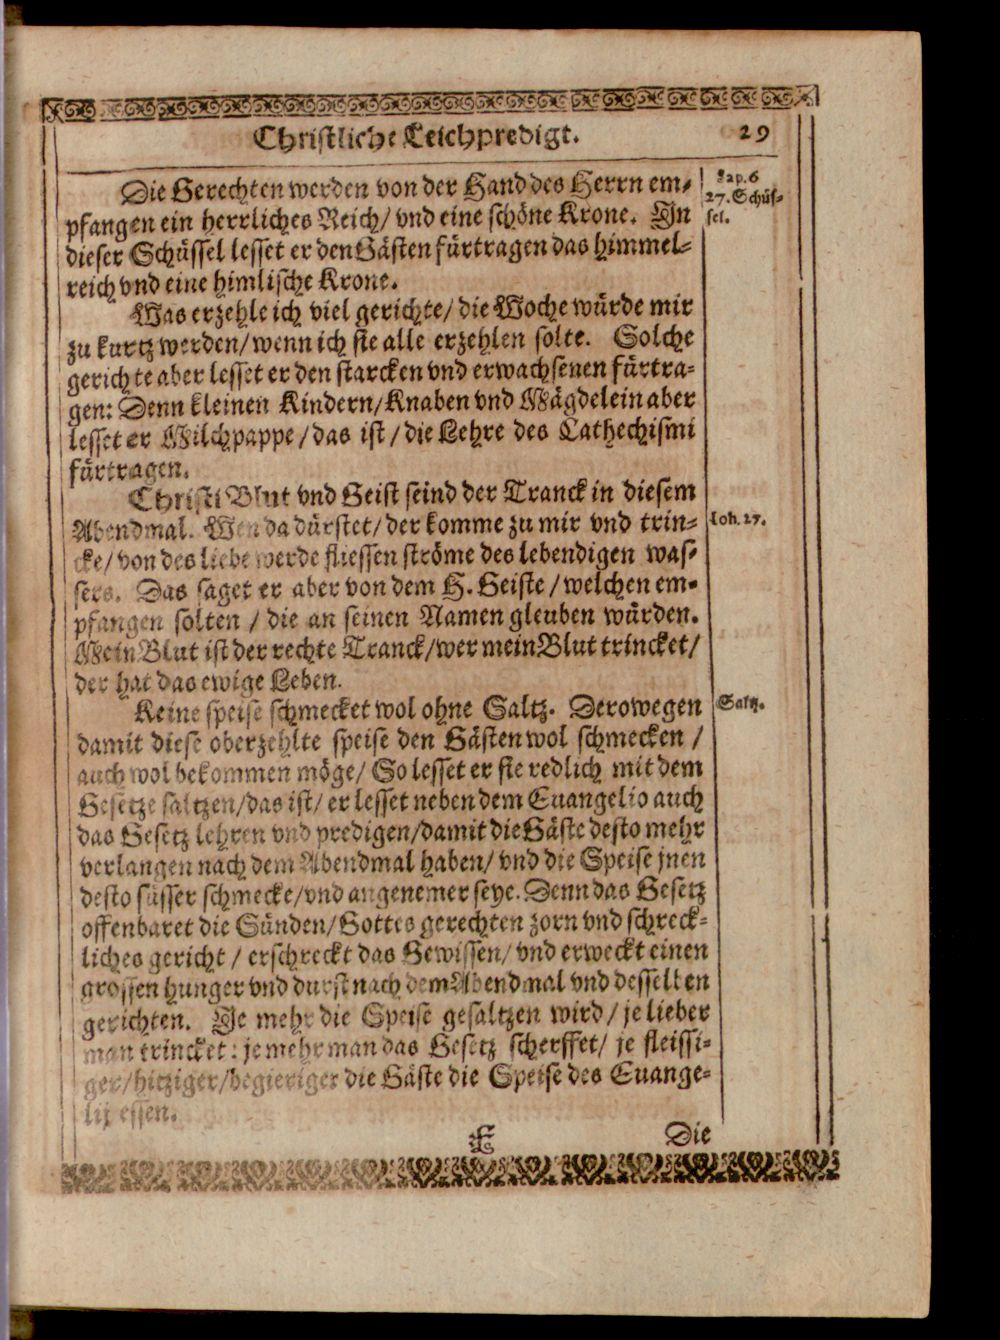 Christliche Leichpredigt. 29
Die Gerechten werden von der Hand des Herrn em-
pfangen ein herrliches Reich/ vnd eine schöne Krone. In
dieser Schüssel lesset er den Gästen fürtragen das himmel-
reich vnd eine himlische Krone.
Sap. 6
27. Schüs-
sel.
Was erzehle ich viel gerichte/ die Woche würde mir
zu kurtz werden/ wenn ich sie alle erzehlen solte. Solche
gerichte aber lesset er den starcken vnd erwachsenen fürtra-
gen: Denn kleinen Kindern/ Knaben vnd Mägdelein aber
lesset er Milchpappe/ das ist/ die Lehre des Cathechismi
fürtragen.
Christi Blut vnd Geist seind der Tranck in diesem
Abendmal. Wen da dürstet/ der komme zu mir vnd trin-
cke/ von des liebe werde fliessen ströme des lebendigen was-
sers. Das saget er aber von dem H. Geiste/ welchen em-
pfangen solten/ die an seinen Namen gleuben würden.
Mein Blut ist der rechte Tranck/ wer mein Blut trincket/
der hat das ewige Leben.
Ioh. 27.
Keine speise schmecket wol ohne Saltz. Derowegen
damit diese oberzehlte speise den Gästen wol schmecken/
auch wol bekommen möge/ So lesset er sie redlich mit dem
Gesetze saltzen/ das ist/ er lesset neben dem Euangelio auch
das Gesetz lehren vnd predigen/ damit die Gäste desto mehr
verlangen nach dem Abendmal haben/ vnd die Speise jnen
desto süsser schmecke/ vnd angenemer seye. Denn das Gesetz
offenbaret die Sünden/ Gottes gerechten zorn vnd schreck-
liches gericht/ erschreckt das Gewissen/ vnd erweckt einen
grossen hunger vnd durst nach dem Abendmal vnd desselben
gerichten. Je mehr die Speise gesaltzen wird/ je lieber
man trincket: je mehr man das Gesetz scherffet/ je fleissi-
ger/ hitziger/ begieriger die Gäste die Speise des Euange-
lij essen.
Saltz.
E Die